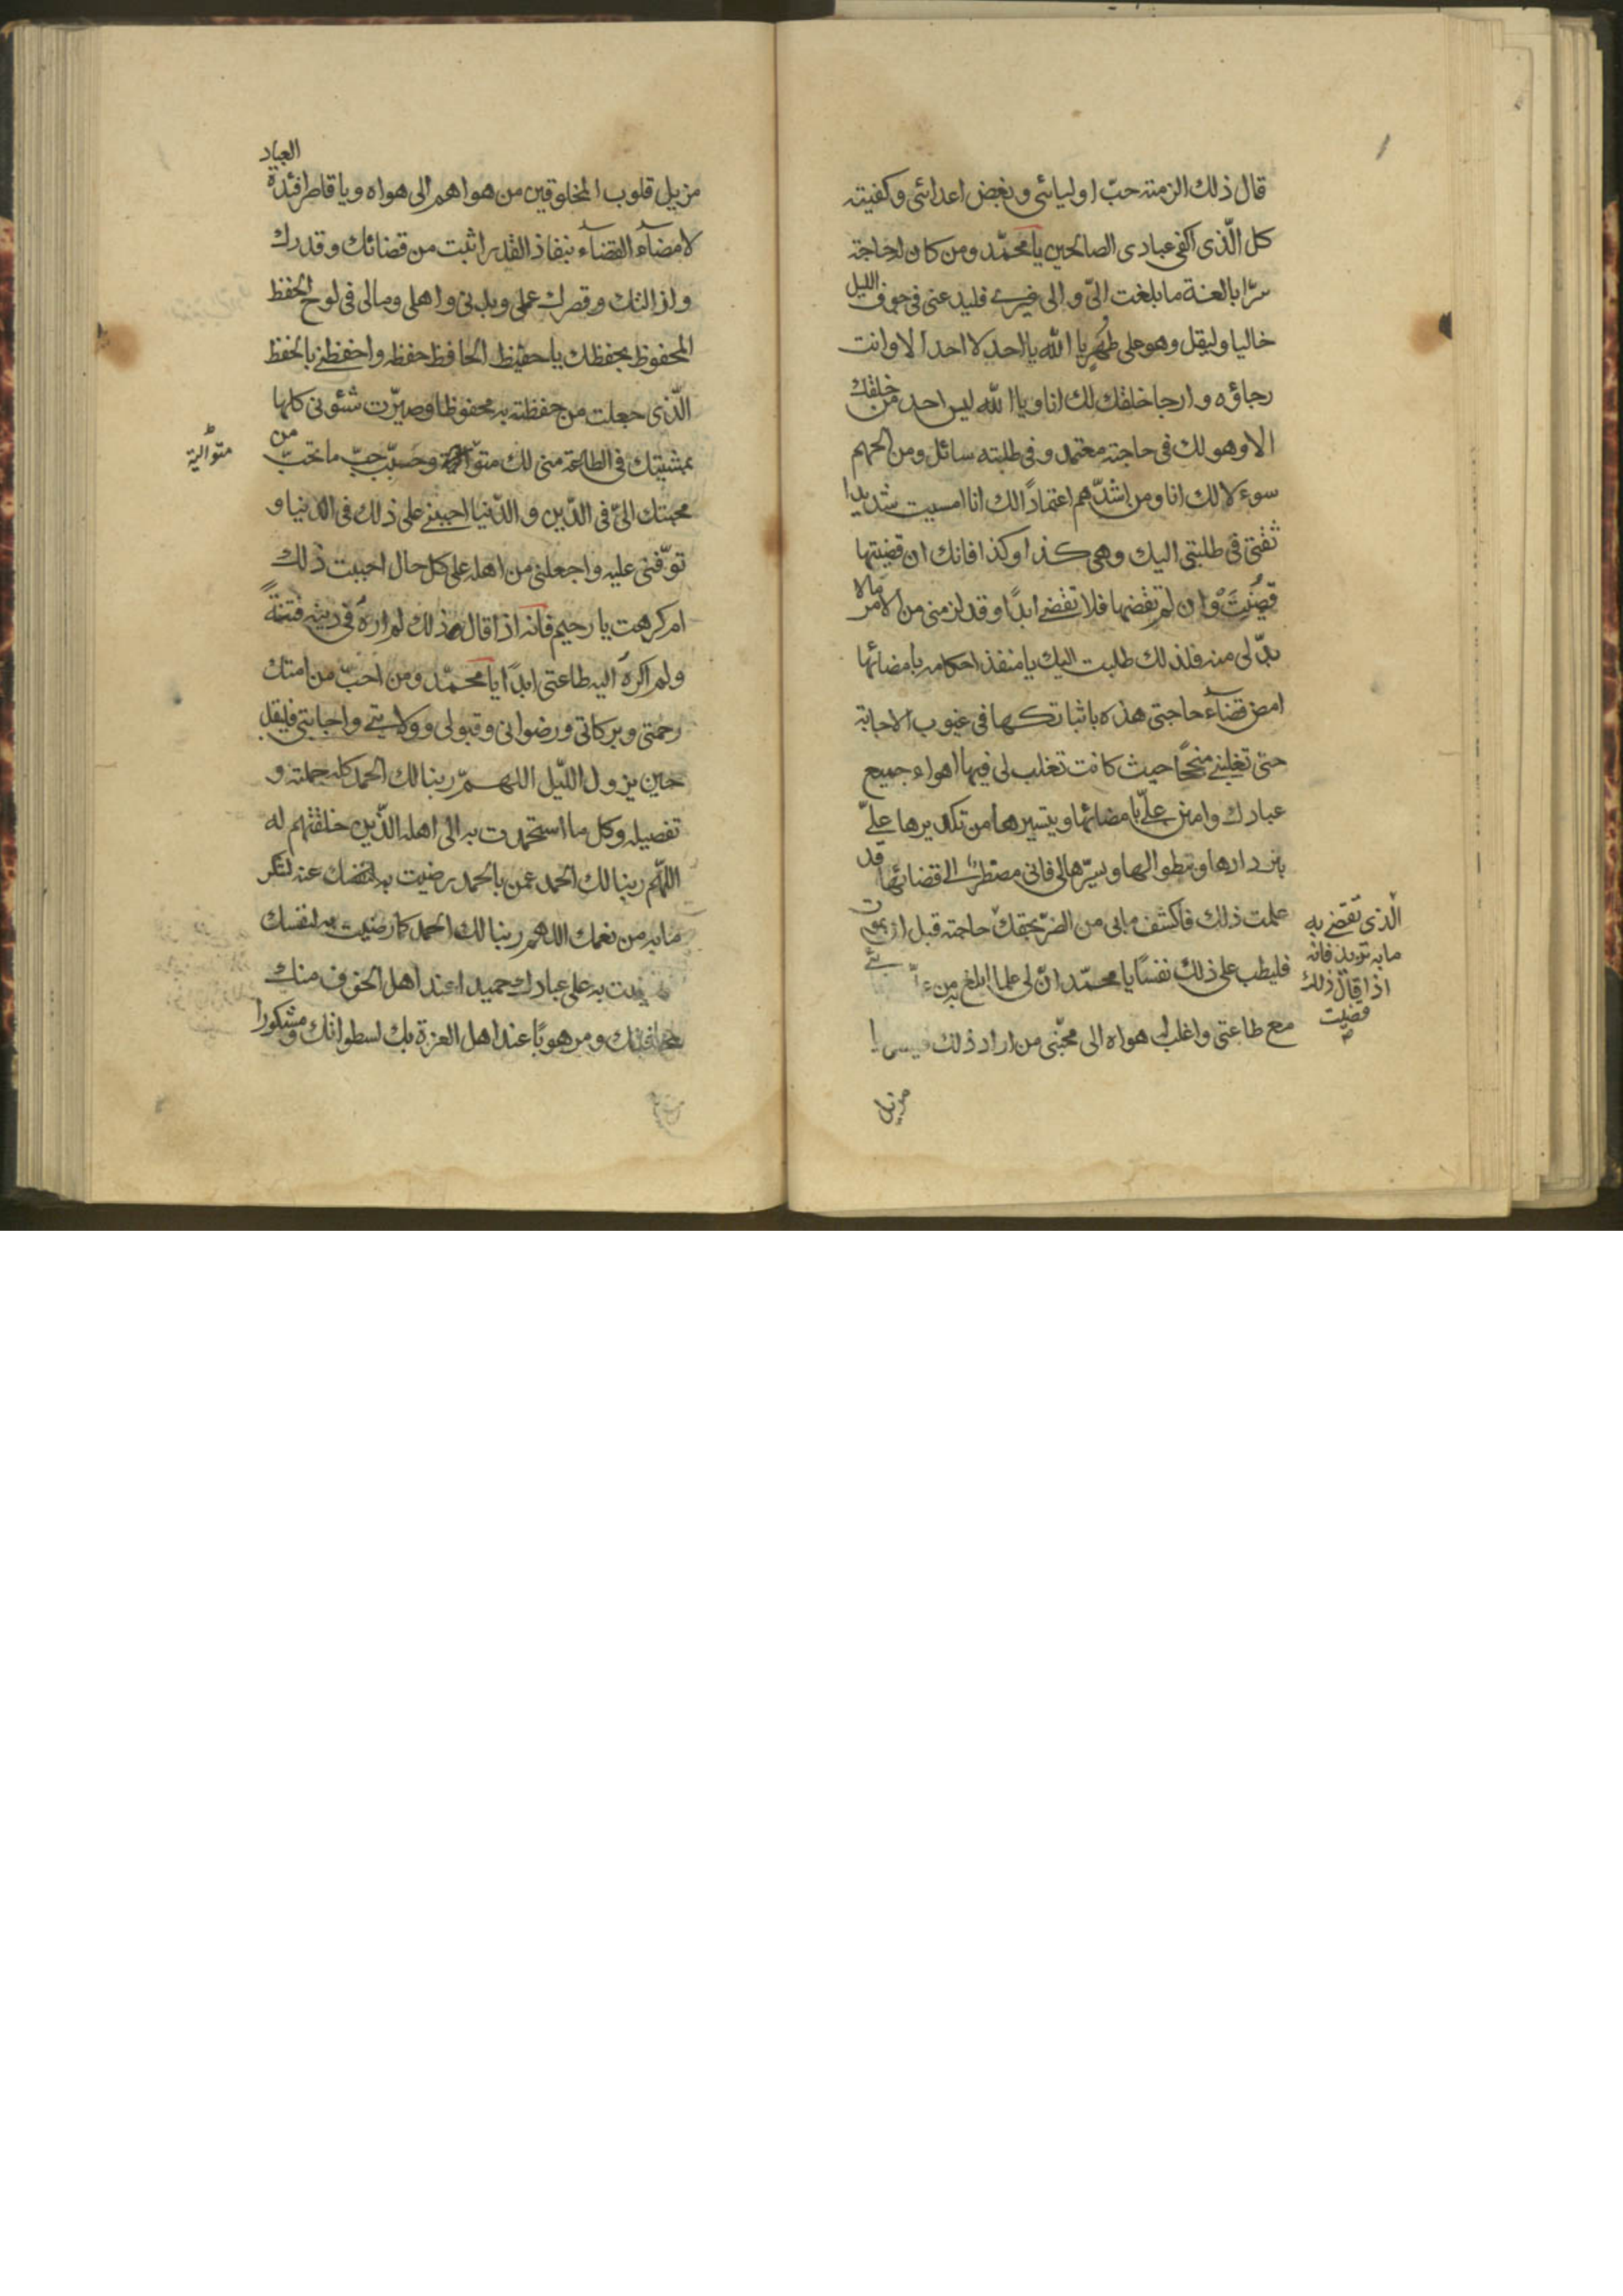 قال ذلك الزمته حبّ اوليائى وبغض اعدائى وكفيته
كل الّذى اكفى عبادى الصالحين يا محمّد ومن كان له حاجة
سرّا بالغة ما بلغت الىّ والى غيرى فليدعنى فى جوف الليل
خاليا وليقل وهو على طهر يا الله يا احد لا احد الا وانت
رجاؤه وارجا خلقك لك انا ويا الله ليس احد من خلقك
الا وهو لك فى حاجته معتمد وفى طلبته سائل ومن الحهم
سوءلا لك انا ومن اشدّهم اعتمادًا لك انا امسيت شديدا
ثقتى فى طلبتى اليك وهى كذا وكذا فانك ان قضيتها
قضيت وان لم تقضها فلا تقضى ابدًا وقد لزمنى من الامر مالا
بدّ لى منه فلذلك طلبت اليك يا منفذ احكامه بامضائها
امض قضآء حاجتى هذه باثباتكها فى غيوب الاجابة
حتى تقلبنى منجحًا حيث كانت تغلب لى فيها اهواء جميع
عبادك وامنن علىّ بامضائها وتيسيرها من تكديرها علىّ
بتردادها وتطوالها ويسّرها لى فانى مضطرّ الى قضائها قد
علمت ذلك فاكشف ما بى من الضرّ بحقك حاجته قبل ان
فليطب على ذلك نفسًا يا محمّد انّ لى علما ابلغ به من
مع طاعتى واغلب له هواه الى محبّتى من اراد ذلك
الّذى تقضى به
ما به تريد فانّه
اذا قال ذلك
قضيت
مزيل
مزيل قلوب المخلوقين من هواهم الى هواه ويا قاطر افئدة العباد
لامضآء القضآء بنفاذ القدر اثبت من قضائك وقدرك
وازالتك وقصرك عملى وبدنى واهلى ومالى فى لوح الحفظ
المحفوظ بحفظك يا حفيظ الحافظ حفظه واحفظنى بالحفظ
الّذى جعلت من حفظته به محفوظا وصيّرت شئونى كلها
بمشيتك فى الطاعة منى لك وحبّب حبّ ما تحبّ من
متوالية
محبتك الىّ فى الدّين والدّنيا احينى على ذلك فى الدنيا و
توّفنى عليه واجعلنى من اهله على كل حال احببت ذلك
ام كرهت يا رحيم فانه اذا قال ذلك لم اره فى دينه فتنةً
ولم اكره اليه طاعتى ابدًا يا محمّد ومن احبّ من امتك
رحمتى وبركاتى ورضوانى وقبولى وولايتى واجابتى فليقل
حين يزول الليّل اللهمّ ربنا لك الحمد كله جملته و
تفصيله وكل ما استحمدت به الى اهله الّذين خلقتهم له
اللّهم ربنا لك الحمد عمن بالحمد رضيت به عنه لشكر
ما به من نعمك اللهم ربنا لك الحمد كما رضيت به لنفسك
به على عبادك حميدا عند اهل الخوف منك
ومرهوبًا عند اهل العزة بك لسطواتك ومشكورا